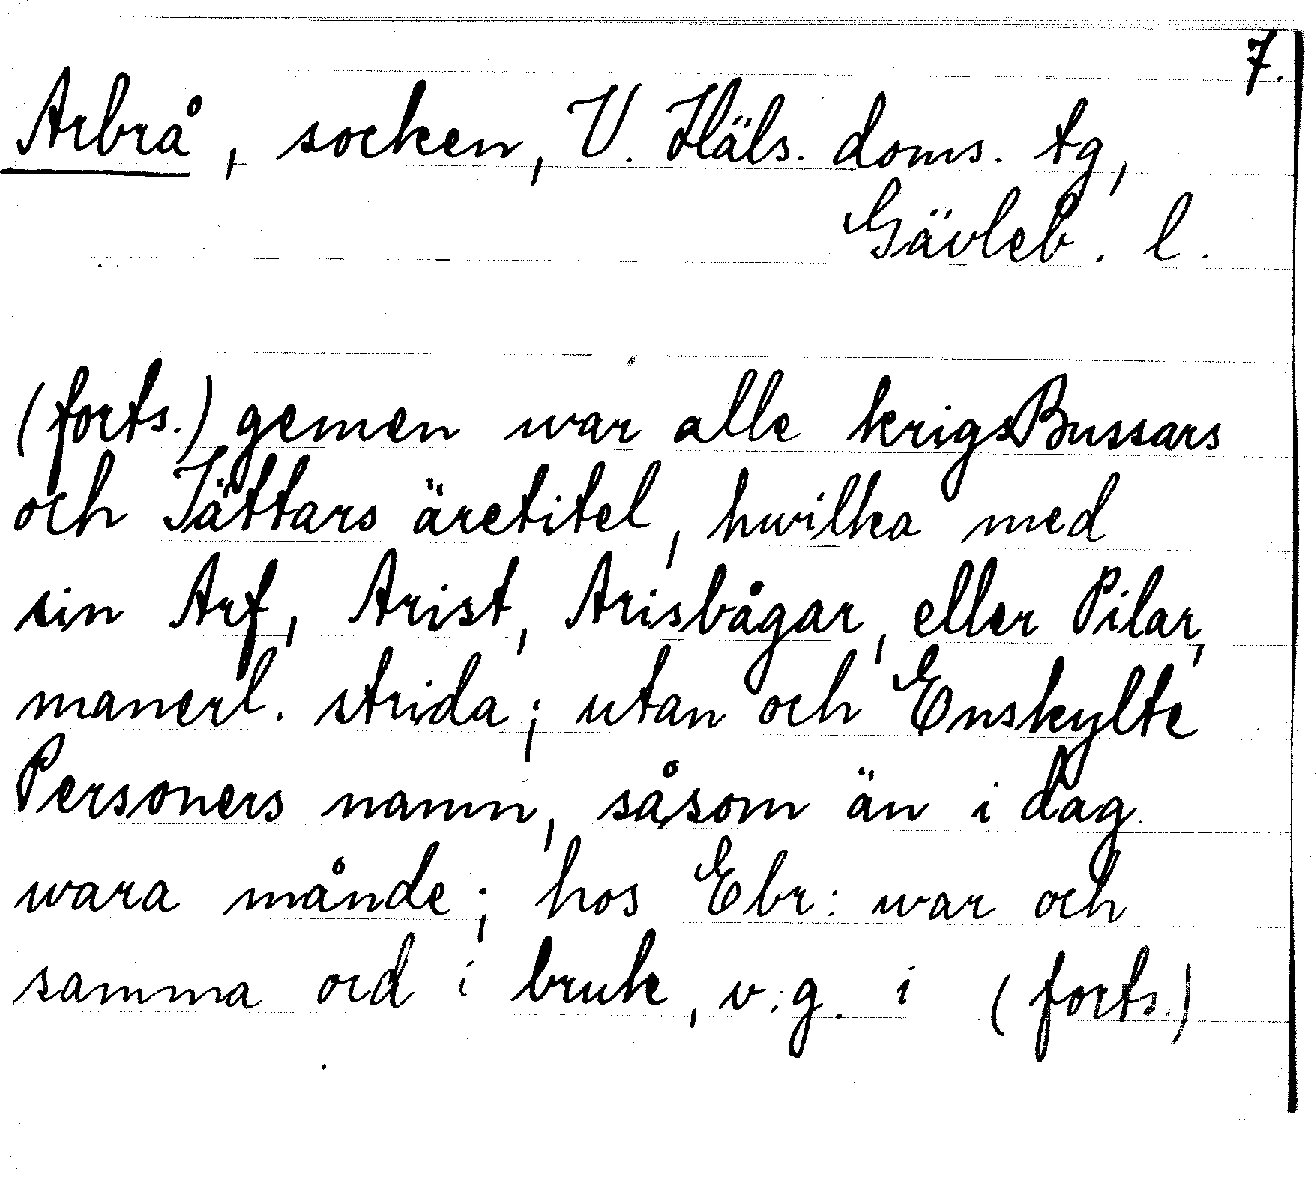 7.
Arbrå, socken, V. Häls. doms. tg,
Gävleb. l.
(forts.) gemen war alle krigsBussars
och Jättars äretitel, hwilka med
sin Arf, Arist, Arisbågar, eller Pilar,
manerl. strida; utan och Enskylte
Personers namn, såsom än i dag
wara månde; hos Ebr: war och
samma ord i bruk, v.g. i (forts.)